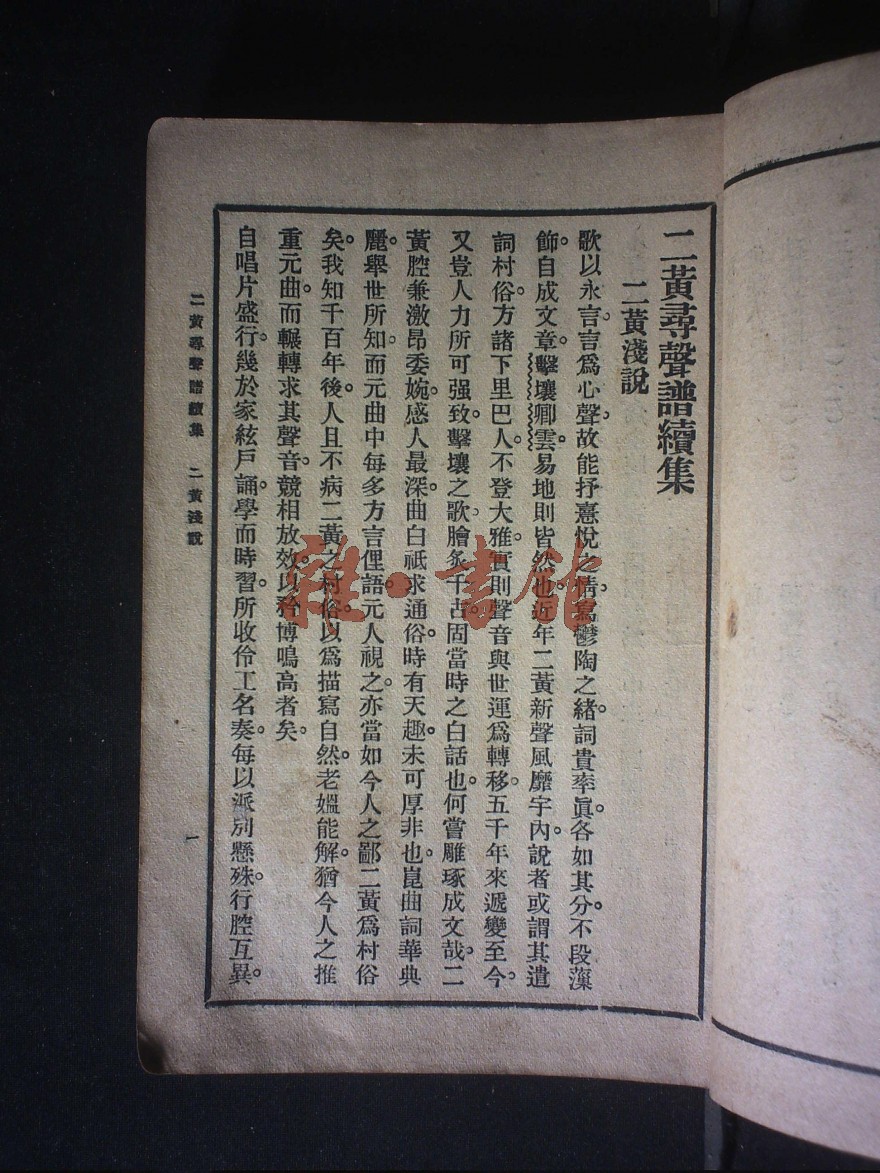 二黃尋聲譜續集
二黃淺說
歌以永言。言爲心聲。故能抒憙悅之情。寫鬱陶之緒。詞貴率眞。各如其分。不段藻
飾。自成文章。擊壤卿雲。易地則皆然也。近年二黃新聲風靡宇內。說者或謂其遣
詞村俗。方諸下里巴人。不登大雅。實則聲音與世運爲轉移。五千年來遞變至今。
又豈人力所可强致。擊壤之歌。膾炙千古。固當時之白話也。何嘗雕琢成文哉。二
黃腔兼激昂委婉。感人最深。曲白祇求通俗。時有天趣。未可厚非也。崑曲詞華典
麗。舉世所知。而元曲中每多方言俚語。元人視之。亦當如今人之鄙二黃爲村俗
矣。我知千百年後。人且不病二黃之村俗。以爲描寫自然。老媼能解。猶今人之推
重元曲。而輾轉求其聲音。競相放效。以矜博鳴高者矣。
自唱片盛行。幾於家絃戶誦。學而時習。所收伶工名奏。每以派別懸殊。行腔互異。
二黃尋聲譜續集　二黃淺說
一
雜·書館